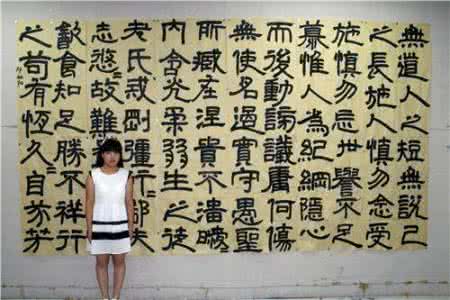 無道人之短無說己
之長施人慎勿念受
施慎勿忘世譽不足
慕惟人為紀綱隱心
而後動謗議庸何傷
無使名過實守愚聖
所臧在涅貴不淄曖〻
內含光柔弱生之徒
老氏戒剛彊行〻鄙夫
志悠〻故難
飲食知足勝不祥行
之苟有恆久〻自芬芳